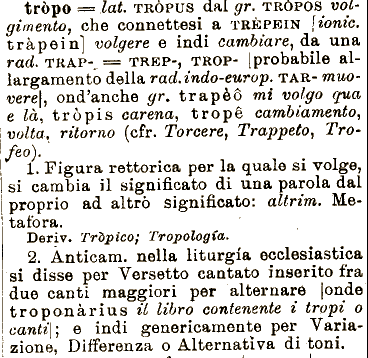 tròpo = lat. TRÒPUS dal gr. TRÓPOS vol-
gimento, che connettesi a TRÈPEIN [ionic.
tràpein] volgere e indi cambiare, da una
rad. TRAP- = TREP-, TROP- [probabile al-
largamento della rad. indo-europ. TAR- muo-
vere], ond'anche gr. trapèô mi volgo qua
e là, tròpis carena, tropê cambiamento,
volta, ritorno (cfr. Torcere, Trappeto, Tro-
feo).
1. Figura rettorica per la quale si volge,
si cambia il significato di una parola dal
proprio ad altro significato: altrim. Me-
tafora.
Deriv. Tròpico; Tropología.
2. Anticam. nella liturgía ecclesiastica
si disse per Versetto cantato inserito fra
due canti maggiori per alternare [onde
troponàrius il libro contenente i tropi o
canti]; e indi genericamente per Varia-
zione, Differenza o Alternativa di toni.